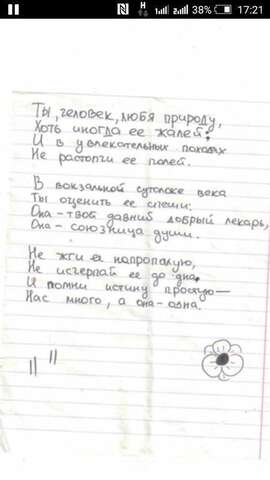 H
38% 17:21
Ты, человек, любя природу,
Хоть иногда ее жалей;
И в увлекательных походах
Не растопчи ее полей.
В вокзальной сутолоке века
Ты оценить ее спеши:
Она - твой давний добрый лекарь,
Она - союзница души.
Не жги ее напропалую,
Не исчерпай ее до дна.
И помни истину простую —
Нас много, а она - одна.